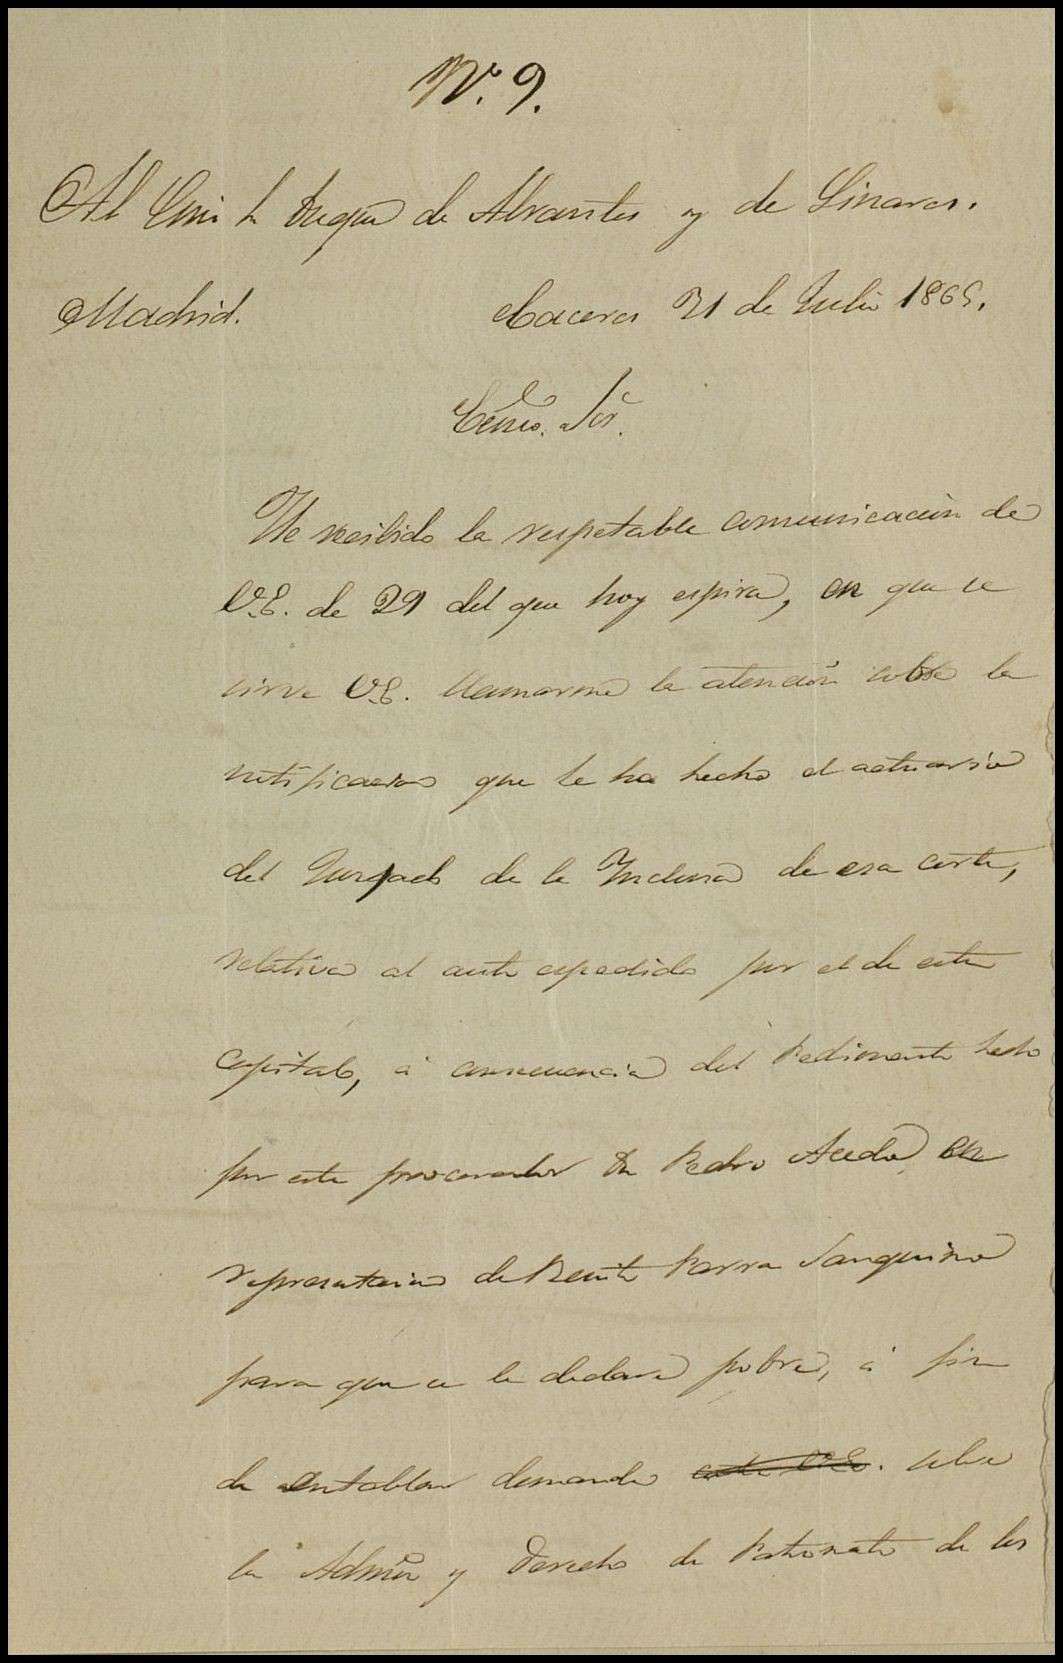 Nº. 9.
Al Exmo Sr Duque de Abrantes y de Linares.
Madrid. Caceres 31 de Julio 1865.
Excmo. Sor.
He recibido la respetable comunicación de
V.E. de 29 del que hoy espira, en que se
sirve V.E. llamarme la atención sobre la
notificacion que le ha hecho el actuario
del Juzgado de la Inclusa de esa corte,
relativa al auto espedido por el de esta
capital, á consecuencia del Pedimento hecho
por este procurador Dn Pedro Acedo en
representacion de Benito Parra Sanguino
para que se le declare pobre, á fin
de entablar demanda sobre
la Admon y derecho de Patronato de los